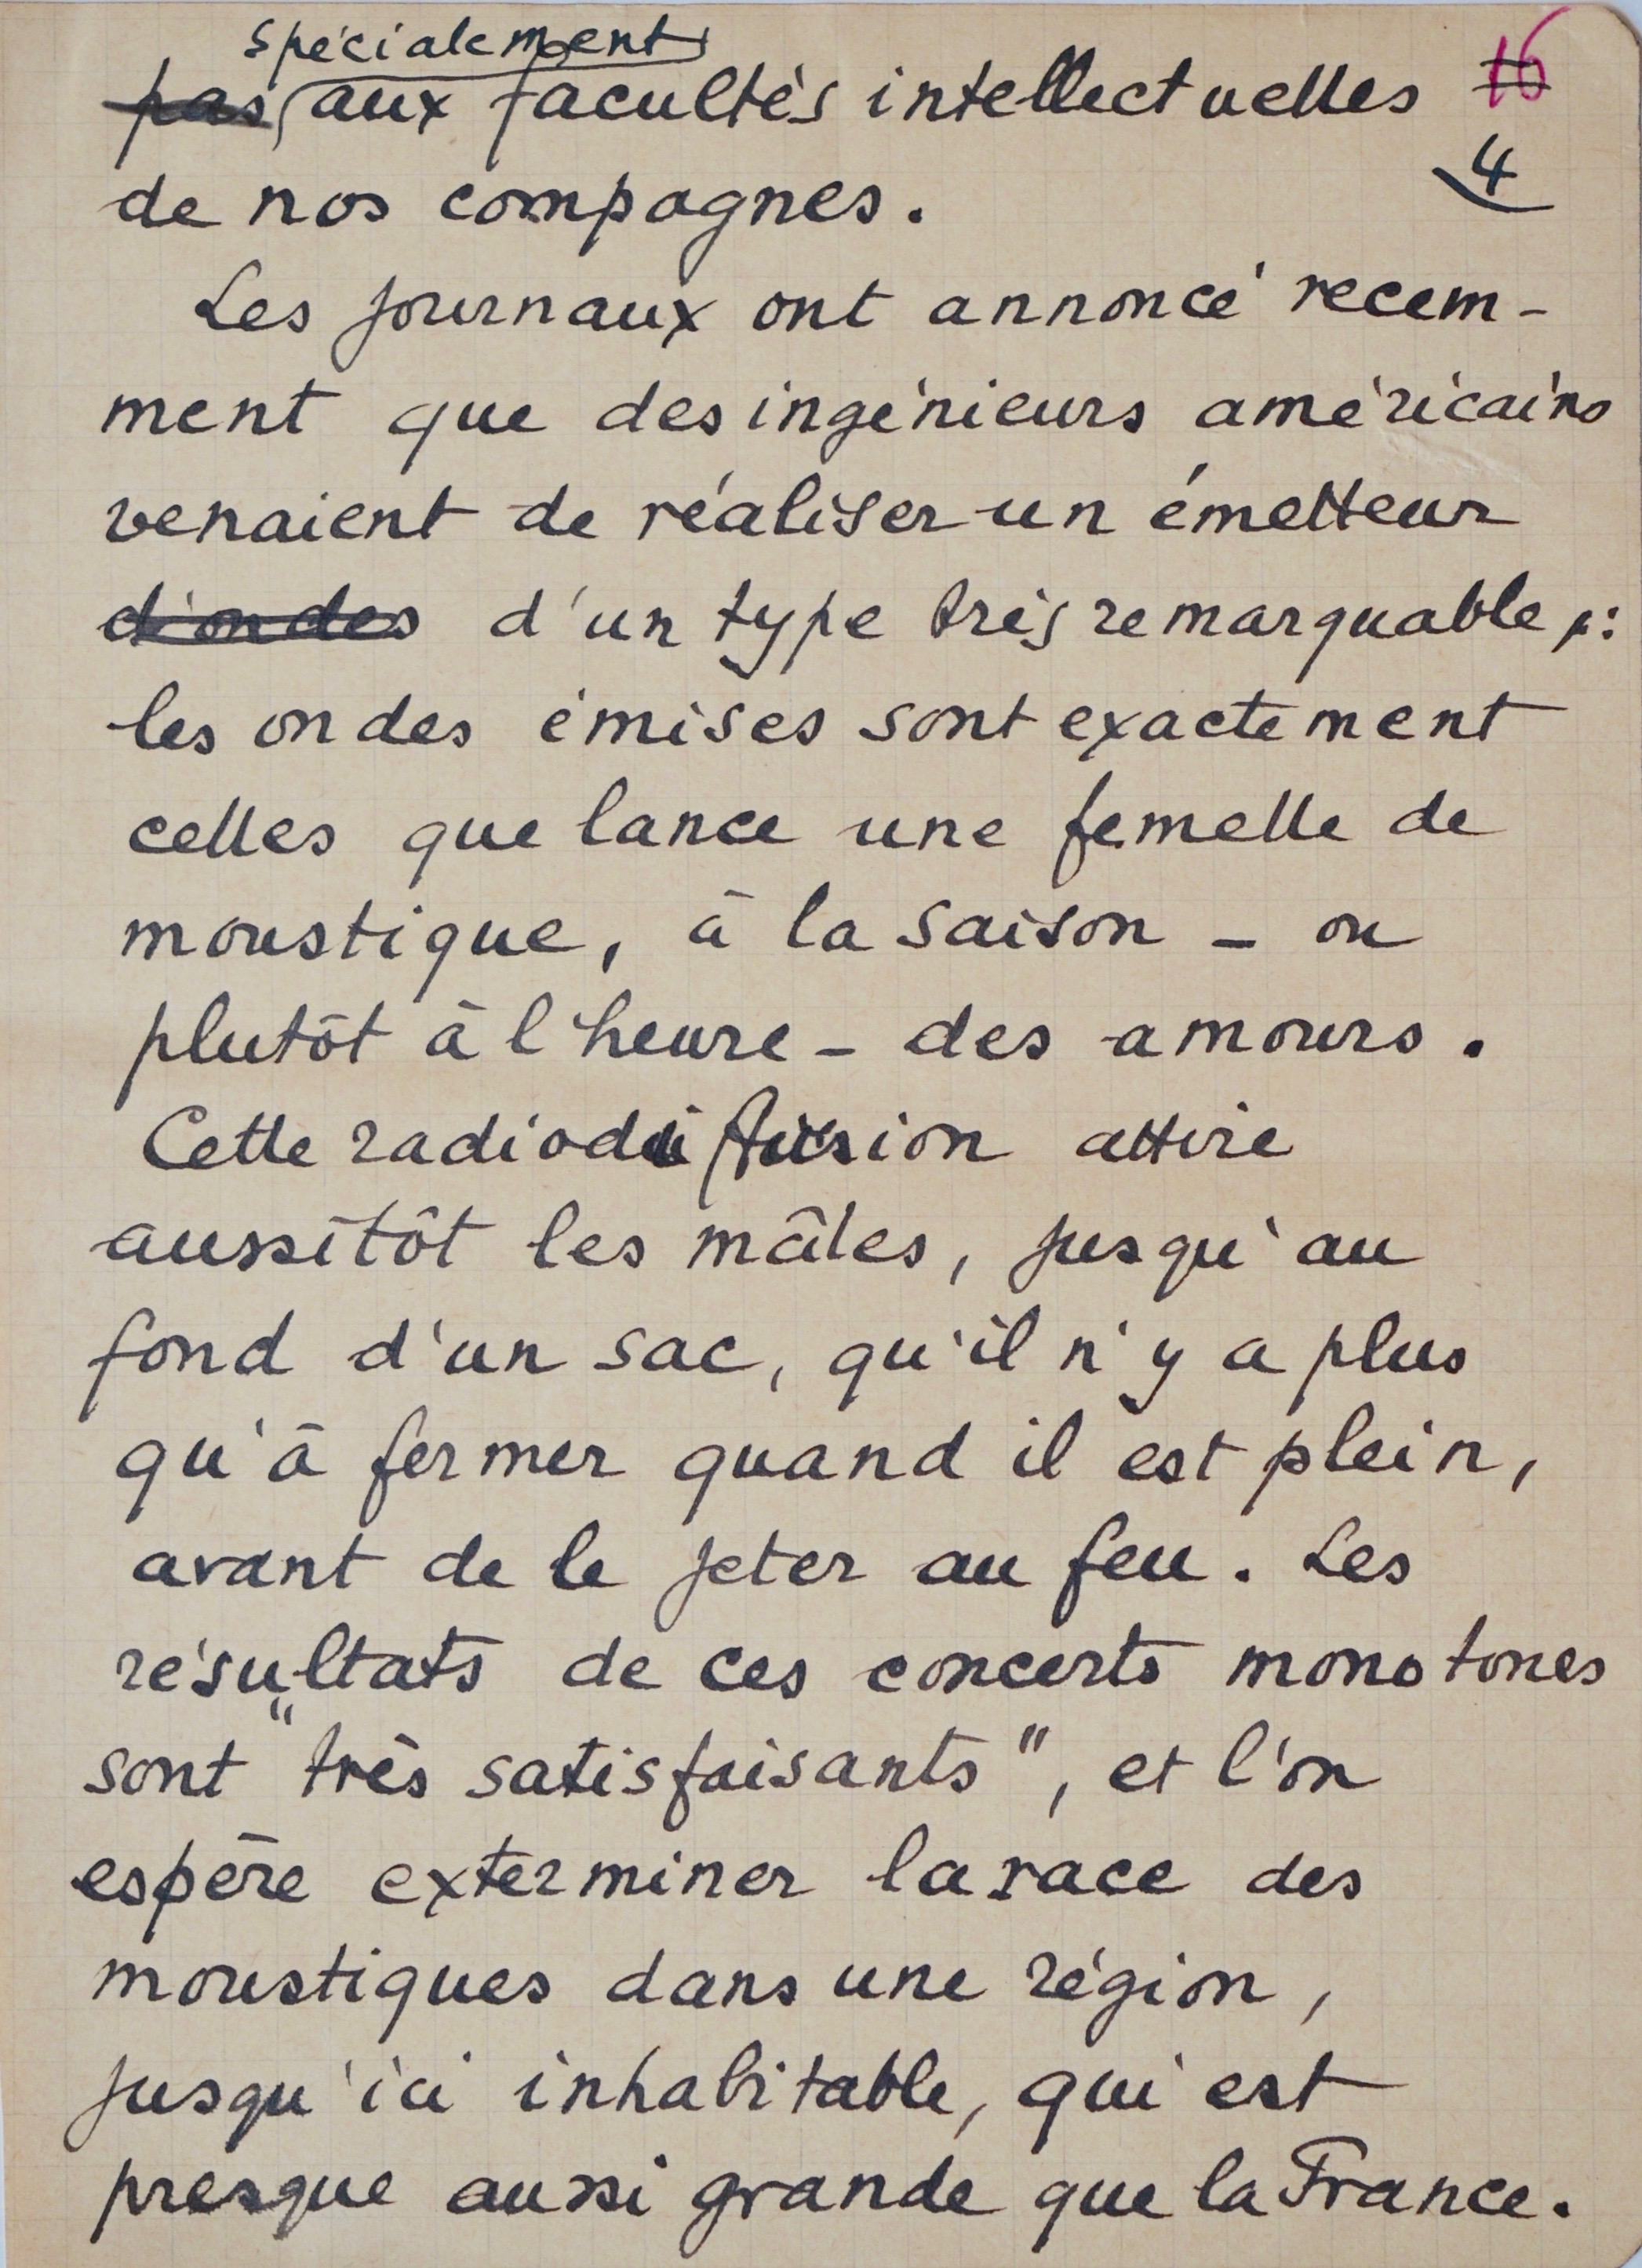 spécialement
pas aux facultés intellectuelles 16
4
de nos compagnes.
Les journaux ont annoncé recem-
ment que des ingénieurs américains
venaient de réaliser un émetteur
d'ondes d'un type très remarquable,:
les ondes émises sont exactement
celles que lance une femelle de
moustique, à la saison - ou
plutôt à l'heure - des amours.
Cette radiodiffusion attire
aussitôt les mâles, jusqu'au
fond d'un sac, qu'il n'y a plus
qu'à fermer quand il est plein,
avant de le jeter au feu. Les
résultats de ces concerts monotones
sont "très satisfaisants", et l'on
espère exterminer la race des
moustiques dans une région,
jusqu'ici inhabitable, qui est
presque aussi grande que la France.